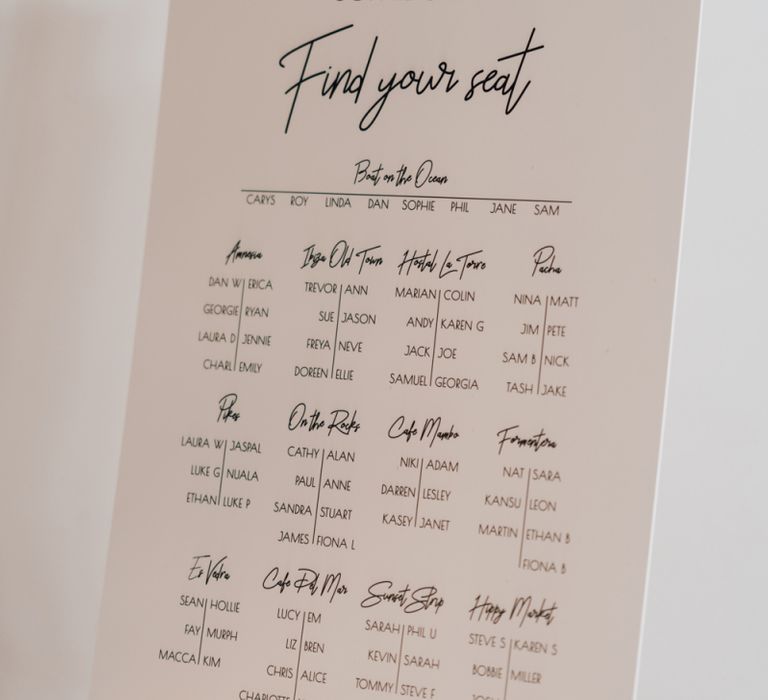 Find your seat
Boat on the Ocean
CARYS ROY LINDA DAN SOPHIE PHIL JANE SAM
Amnesia
DAN W ERICA
GEORGIE RYAN
LAURA D JENNIE
CHARL EMILY
Ibiza Old Town
TREVOR ANN
SUE JASON
FREYA NEVE
DOREEN ELLIE
Hostal La Torre
MARIAN COLIN
ANDY KAREN G
JACK JOE
SAMUEL GEORGIA
Pacha
NINA MATT
JIM PETE
SAM B NICK
TASH JAKE
Pikes
LAURA W JASPAL
LUKE G NUALA
ETHAN LUKE P
On the Rocks
CATHY ALAN
PAUL ANNE
SANDRA STUART
JAMES FIONA L
Cafe Mambo
NIKI ADAM
DARREN LESLEY
KASEY JANET
Formentera
NAT SARA
KANSU LEON
MARTIN ETHAN B
FIONA B
Es Vedra
SEAN HOLLIE
FAY MURPH
MACCA KIM
Cafe Del Mar
LUCY EM
LIZ BREN
CHRIS ALICE
CHARLOTTE
Sunset Strip
SARAH PHIL U
KEVIN SARAH
TOMMY STEVE F
Hippy Market
STEVE S KAREN S
BOBBIE MILLER